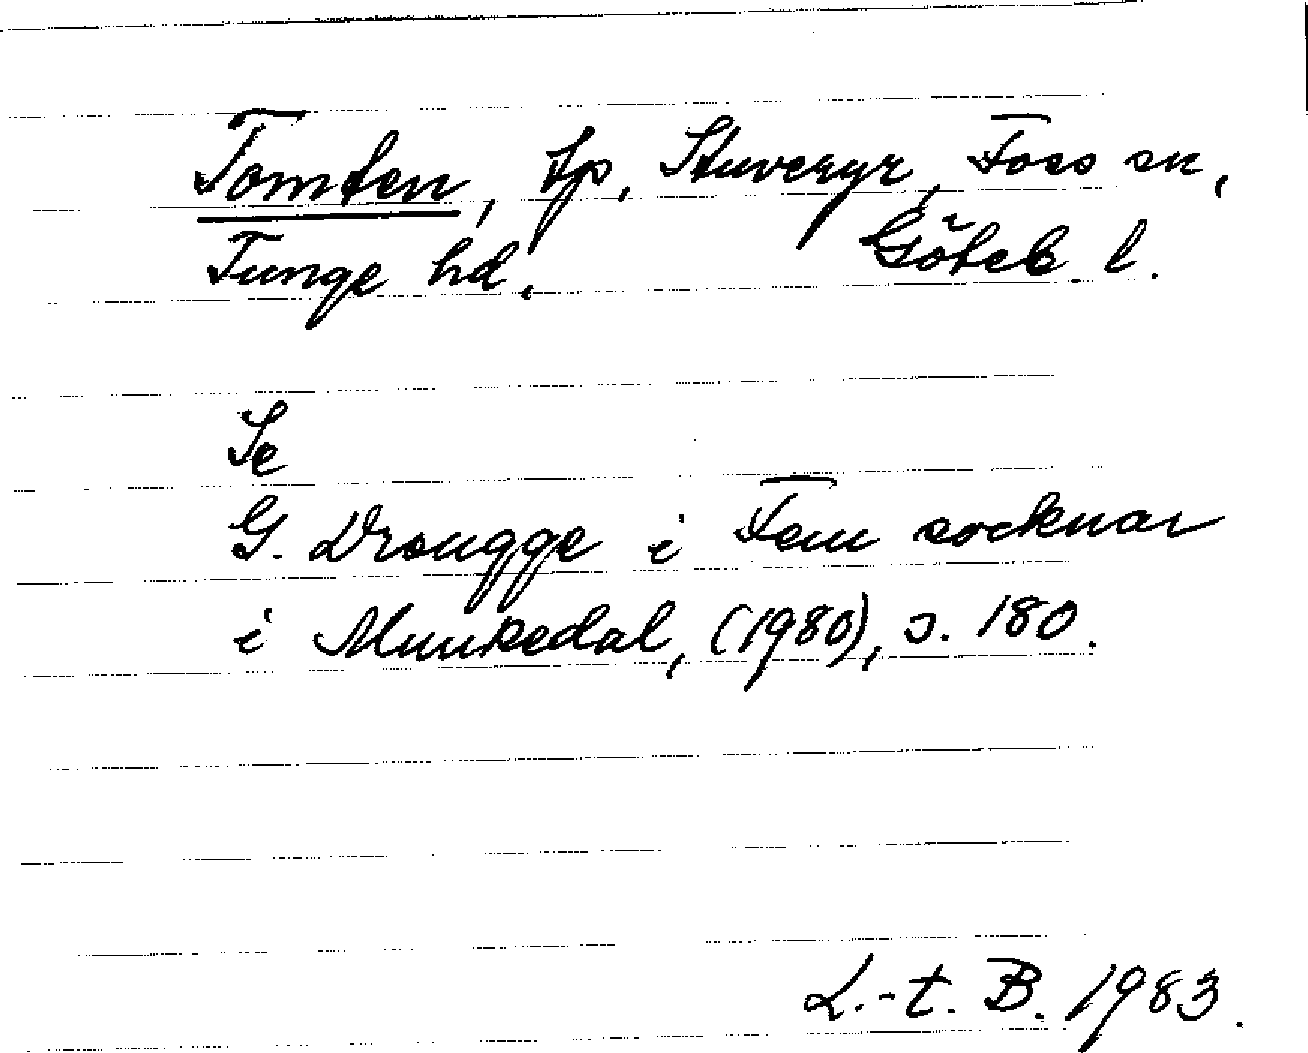 Tomten, tp, Stuveryr, Foss sn,
Tunge hd. Göteb. l.
Se
G. Drougge i Fem socknar
i Munkedal, (1980), s. 180.
L.-t. B. 1983.